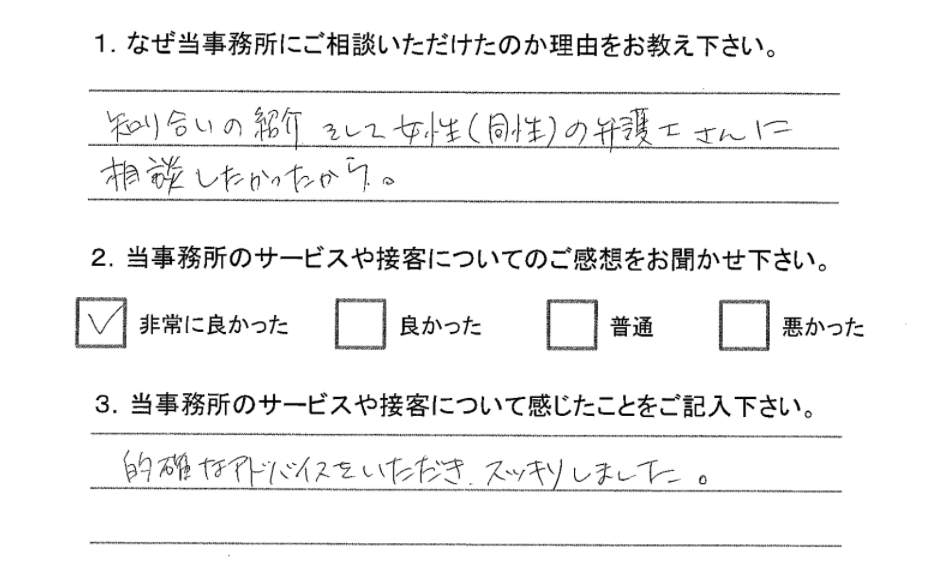 1. なぜ当事務所にご相談いただけたのか理由をお教え下さい。
知り合いの紹介 そして女性(同性)の弁護士さんに
相談したかったから。
2. 当事務所のサービスや接客についてのご感想をお聞かせ下さい。
非常に良かった 良かった 普通 悪かった
3. 当事務所のサービスや接客について感じたことをご記入下さい。
的確なアドバイスをいただき、スッキリしました。